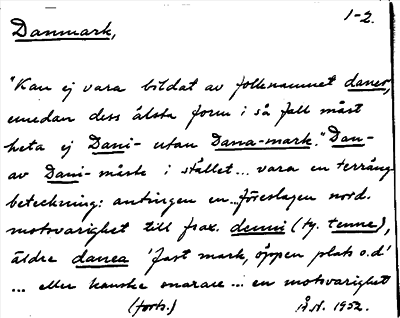 1-2.
Danmark,
"Kan ej vara bildat av folknamnet daner,
emedan dess älsta form i så fall måst
heta ej Dani- utan Dana-mark." Dan-
av Dani- måste i stället... vara en terräng-
beteckning: antingen en... föreslagen nord.
motsvarighet till frax. denni (ty. tenne),
äldre danea 'fast mark, öppen plats o.d'
... eller kanske snarare ... en motsvarighet
(forts.) Å.N. 1952.